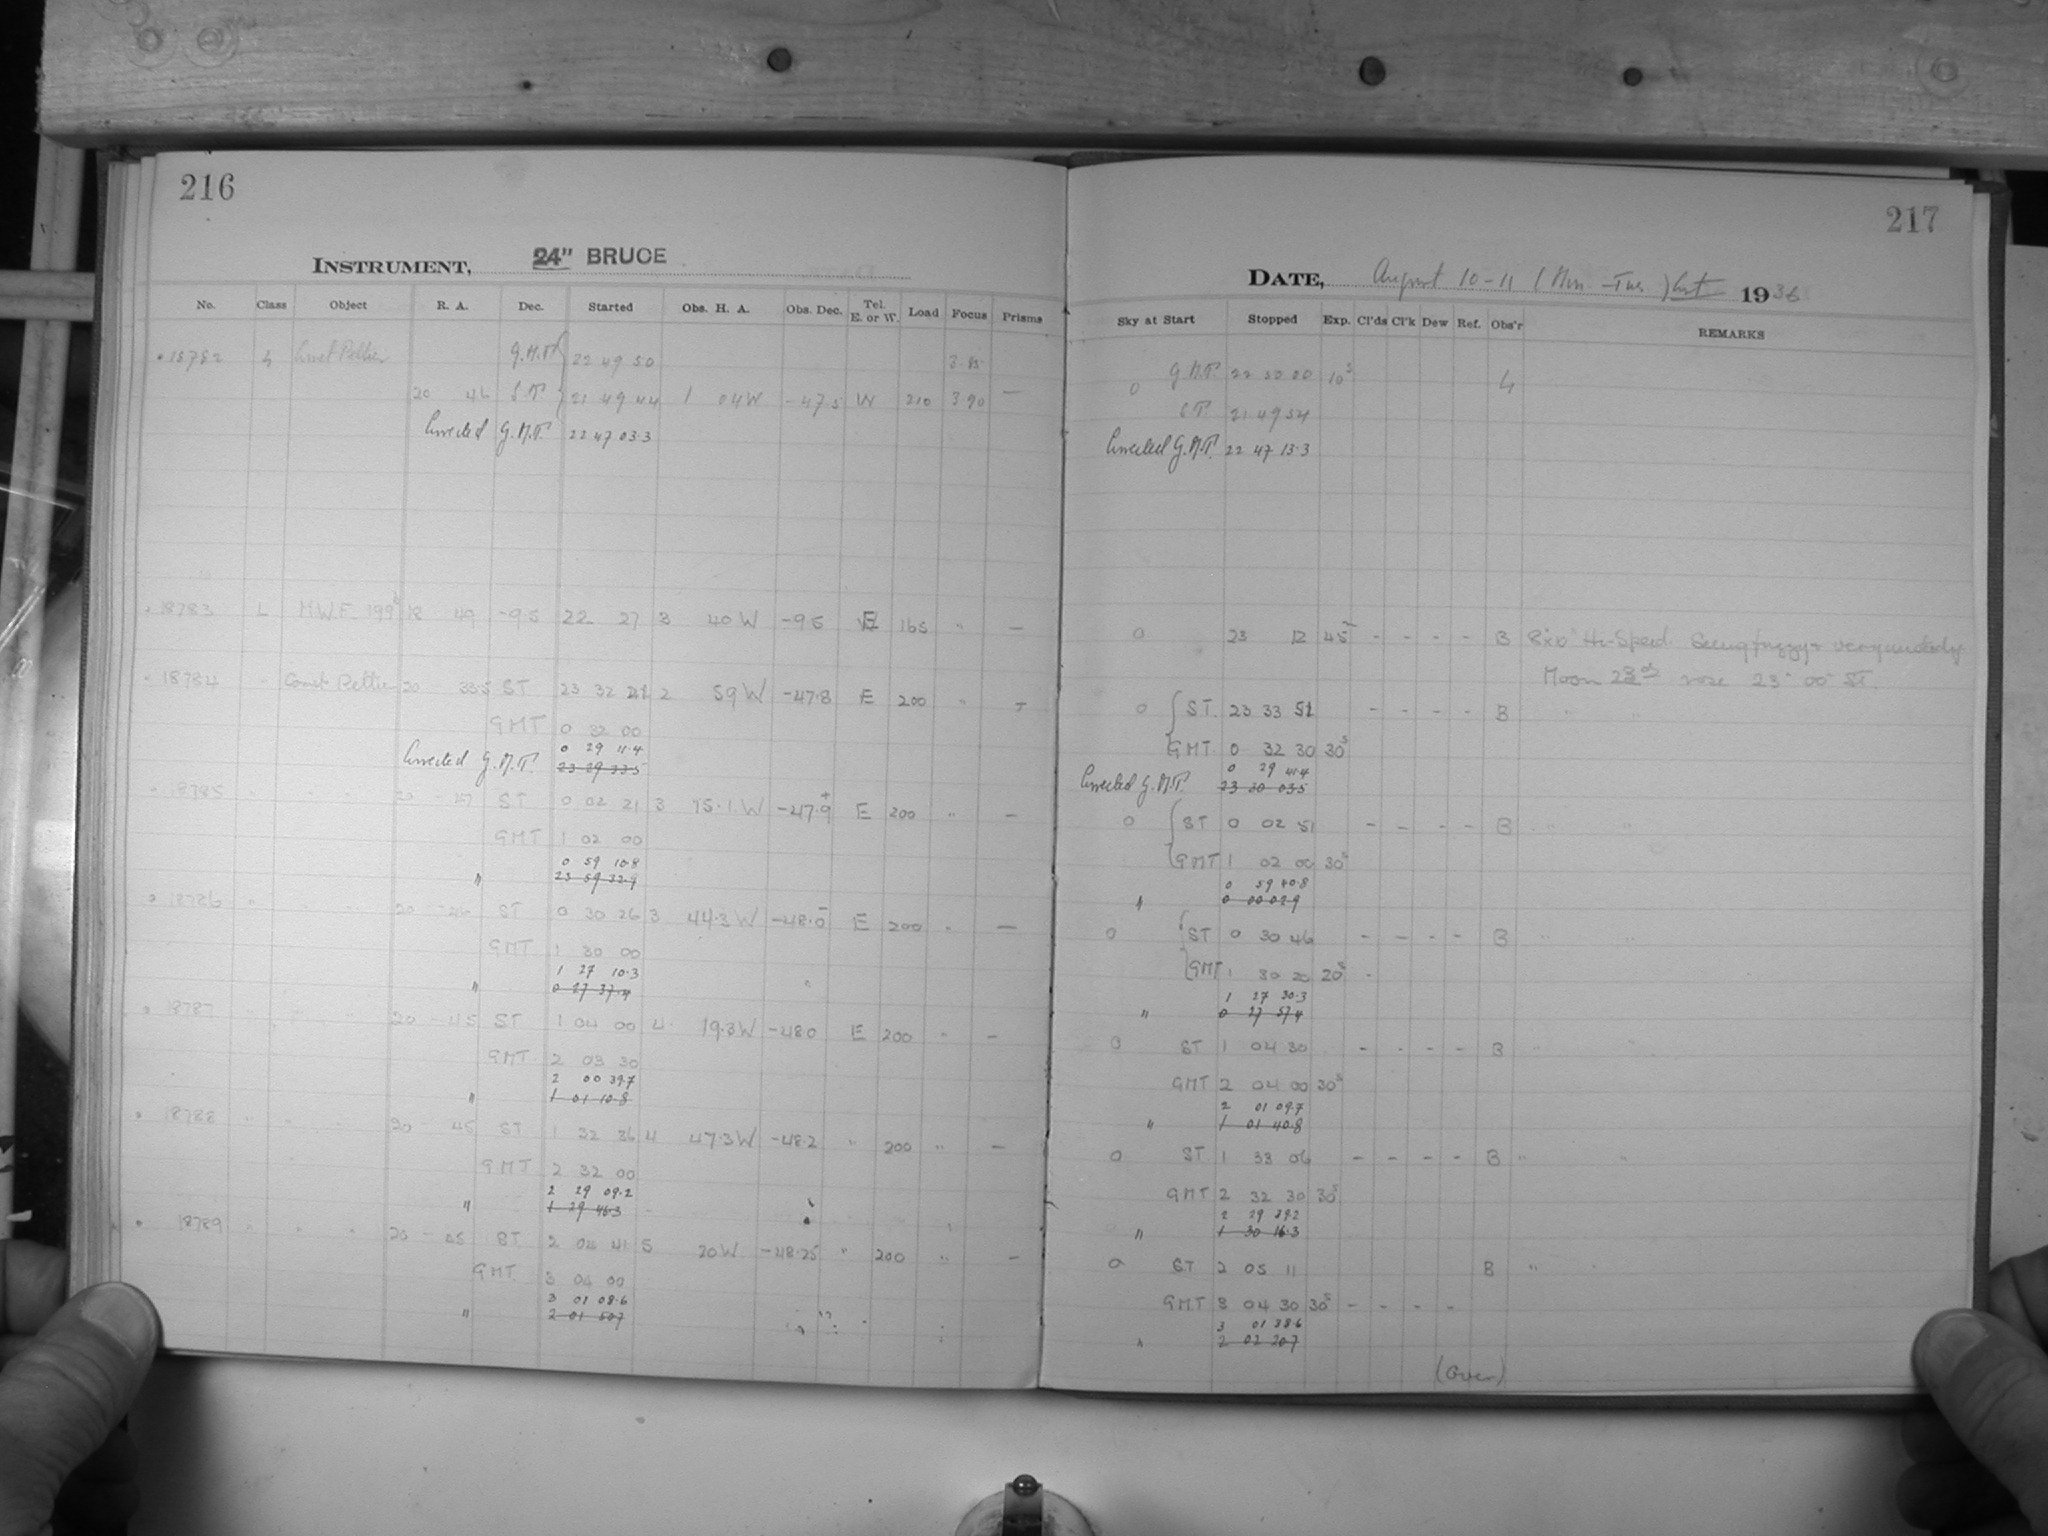 216
INSTRUMENT, 24" BRUCE
No. Class Object R. A. Dec. Started Obs. H. A. Obs. Dec. Tel. E. or W. Load Focus Prisms
18782 Comet Peltier G.M.T. 22 49 50 3.85
20 46 S.T. 21 49 44 1 04 W -47.5 W 210 3.90 —
Corrected G.M.T. 22 47 03.3
18783 L M.W.F. 199 18 49 -9.5 22 27 3 40 W -9.5 E 165 " —
18784 " Comet Peltier 20 33.5 ST 23 32 21 2 59 W -47.8 E 200 " -
GMT 0 32 00
0 29 11.4
Corrected G.M.T. 23 29 33.5
18785 " " " 20 47 ST 0 02 21 3 15.1 W -47.9 E 200 " —
GMT 1 02 00
0 59 10.8
" 23 59 32.9
18786 " " " 20 46 ST 0 30 26 3 44.3 W -48.0 E 200 " —
GMT 1 30 00
1 27 10.3
" 0 27 37.4
18787 " " " 20 45 ST 1 04 00 4 19.3 W -48.0 E 200 " —
GMT 2 03 30
2 00 39.7
" 1 01 10.8
18788 " " " 20 45 ST 1 32 36 4 47.3 W -48.2 " 200 " —
GMT 2 32 00
2 29 09.2
" 1 29 46.3
18789 " " " 20 45 ST 2 04 41 5 20 W -48.25 " 200 " —
GMT 3 04 00
3 01 08.6
" 2 01 50.7
217
DATE, August 10-11 (Mon. - Tues.) 1936
Sky at Start Stopped Exp. Cl'ds Cl'k Dew Ref. Obs'r REMARKS
0 G.M.T. 22 50 00 10s
S.T. 21 49 54
Corrected G.M.T. 22 47 13.3
0 23 12 45 - - - - B 8x10 Hi-Speed. Seeing fuzzy & very unsteady
Moon 23rd rose 23 00 ST.
0 ST. 23 33 51 - - - - B " "
GMT 0 32 30 30s
0 29 41.4
Corrected G.M.T. 23 30 03.5
0 ST 0 02 51 - - - - B " "
GMT 1 02 00 30s
0 59 40.8
" 0 00 02.9
0 ST 0 30 46 - - - - B " "
GMT 1 30 20 20s
1 27 30.3
" 0 27 57.4
0 ST 1 04 30 - - - - B " "
GMT 2 04 00 30s
2 01 09.7
" 1 01 40.8
0 ST 1 33 06 - - - - B " "
GMT 2 32 30 30s
2 29 39.2
" 1 30 16.3
0 ST 2 05 11 B "
GMT 3 04 30 30s - - - -
3 01 38.6
" 2 02 20.7
(Over)